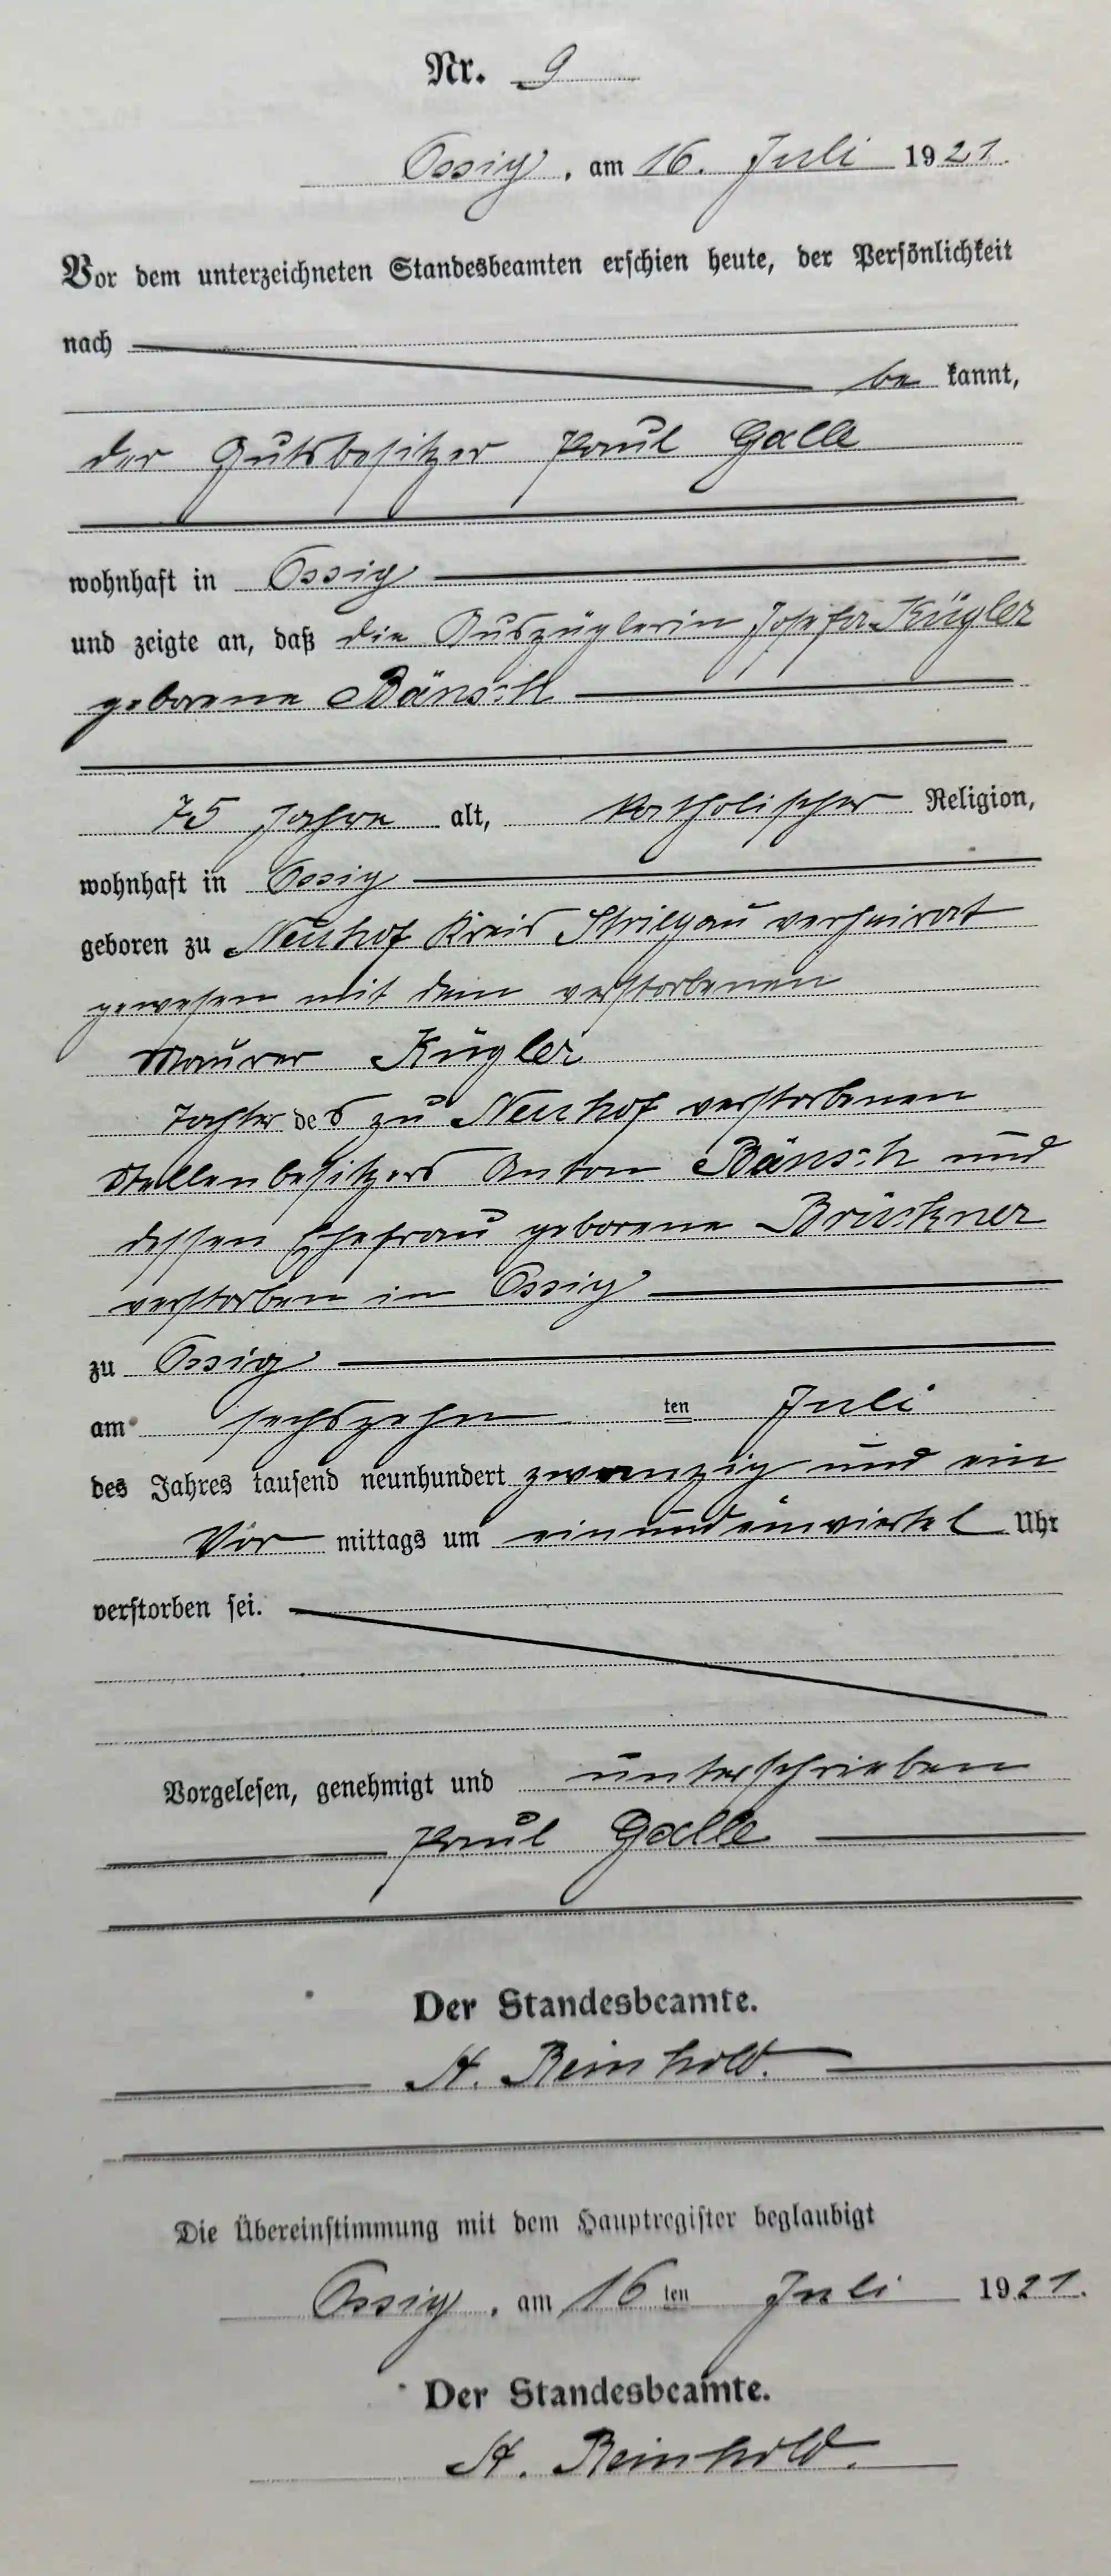 Nr. 9
Ossig, am 16. Juli 1921.
Vor dem unterzeichneten Standesbeamten erschien heute, der Persönlichkeit
nach
be kannt,
der Gutsbesitzer Paul Galle
wohnhaft in Ossig
und zeigte an, daß die Auszüglerin Josefa Kügler
geborene Bänsch
75 Jahre alt, katholischer Religion,
wohnhaft in Ossig
geboren zu Neuhof Kreis Striegau verheirat
gewesen mit dem verstorbenen
Maurer Kügler
Tochter des zu Neuhof verstorbenen
Stellenbesitzers Anton Bänsch und
dessen Ehefrau geborene Brückner
verstorben in Ossig
zu Ossig
am sechszehn ten Juli
des Jahres tausend neunhundert zwanzig und ein
Vor mittags um einundeinviertel Uhr
verstorben sei.
Vorgelesen, genehmigt und unterschrieben
Paul Galle
Der Standesbeamte.
A. Reinhold.
Die Übereinstimmung mit dem Hauptregister beglaubigt
Ossig, am 16 ten Juli 1921.
Der Standesbeamte.
A. Reinhold.